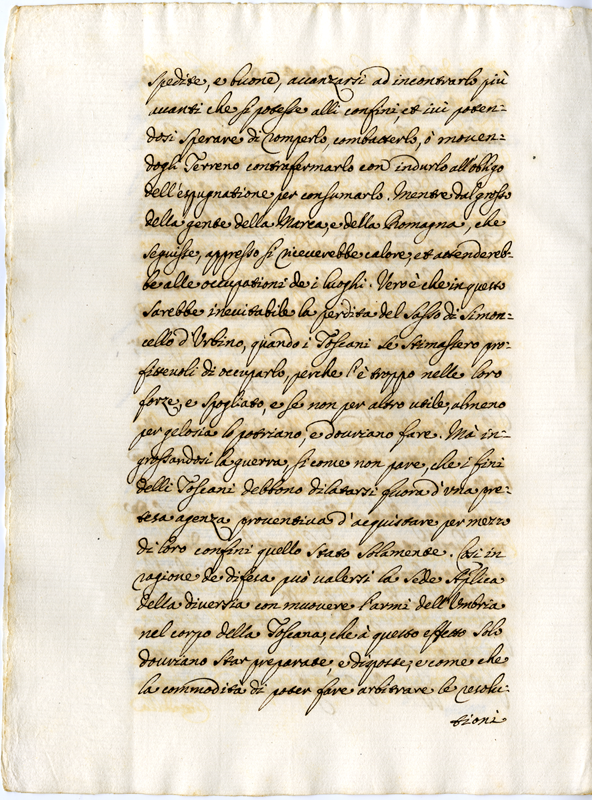 spedite, e buone, avanzarsi ad incontrarlo più
avanti che si potesse alli confini, et ivi poten-
dosi sperare di romperlo, combatterlo, ò moven-
dogli Terreno contrafermarlo con indurlo all'obligo
dell'espugnatione per consumarlo. Mentre dal grosso
della gente della Marca, e della Romagna, che
seguisse, appresso si riceverebbe calore, et attendereb-
be alle occupationi de i luoghi. Vero è che in questo
sarebbe inevitabile la perdita del Sasso di Simon-
cello d'Urbino, quando i Toscani se stimassero pro-
fittevoli di occuparlo, perche l'è troppo nelle loro
forze, e spogliato, e se non per altro utile, almeno
per gelosia lo potriano, e dovriano fare. Mà in-
grossandosi la guerra, si come non pare, che i fini
delli Toscani debbono dilatarsi fuora d'una pre-
tesa agenza proventiva d'acquistare per mezzo
di loro confini quello stato solamente. Così in
ragione de difesa può valersi la Sede Aplica
della diversia con muovere l'armi dell'Umbria
nel corpo della Toscana, che à questo effetto solo
dovriano star preparate, e disposte, e come che
la commodità di poter fare arbitrare le resolu-
tioni